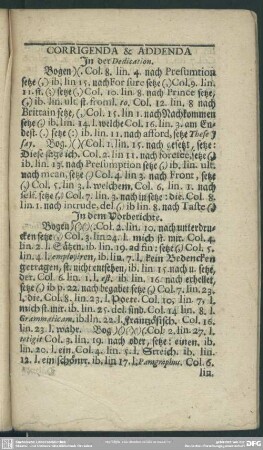 CORRIGENDA & ADDENDA
In der Dedication.
Bogen )( . Col. 8. lin. 4. nach Presumtion
setze (,) ib. lin 15. nach For sure setze (,) Col. 9. lin.
11. st. (;) setze (,) Col. 10. lin. 8. nach Prince setze,
(,) ib. lin. ult. st. froml. to. Col. 12. lin, 8 nach
Brittain setze, (, Col. 15. lin 1. nach Nachkommen
setze (,) ib. lin. 14. l. welche Col. 16. lin. 3. am En-
de st. (,) setze (:) ib. lin 11. nach afford, setze These I
say. Bog. )( )( Col. 1. lin. 15. nach gesetzt, setze:
Diese sage ich. Col. 2. lin 11. nach forceire, setze (,)
ib. lin. 13. nach Presumption setze (,) ib. lin. ult.
nach mean, setze (,) Col. 4 lin 3. nach Front, setze
(,) Col. 5. lin 3. l. welchem. Col. 6. lin. 1. nach
self, setze (,) Col. 7. lin. 3. nach in setze: die. Col. 8.
lin. 1. nach intrude, del (,) ib lin. 8. nach Tuste (,)
In dem Vorberichte.
Bogen )( )( )( Col. 2. lin. 10. nach unterdru-
cken setze (,) Col. 3. lin 24. l. mich st. mir. Col. 4.
lin 2. l. Sätzen. ib. lin. 19. ad fin: setze (,) Col. 5.
lin. 4. l. employiren, ib. lin, 7. l. kein Bedencken
getragen, st. nicht entsehen, ib. lin. 15. nach u. setze,
der. Col. 6. lin. 1. l. est. ib. lin. 16. nach erhellet,
setze (,) ib p. 22. nach begabet setze (,) Col 7. lin. 23.
l. die. Col. 8. lin. 23. l. Poete. Col. 10, lin 7, l.
mich st. mir. ib. lin. 25. del. sind. Col. 14 lin. 8. l.
Grammaticam, ib. lin. 22. l. Französisch. Col. 16.
lin. 23. l. wahr. Bog )( )( )( )( Col 2. lin. 27. l.
tetigit Col. 3. lin. 19. nach oder, setze: einen. ib.
lin. 20. l. ein. Col. 4. lin. 5. l. Streich. ib. lin.
12. l. ein schönr. ib. lin 17. l. Pamphilus. Col. 6.
lin.